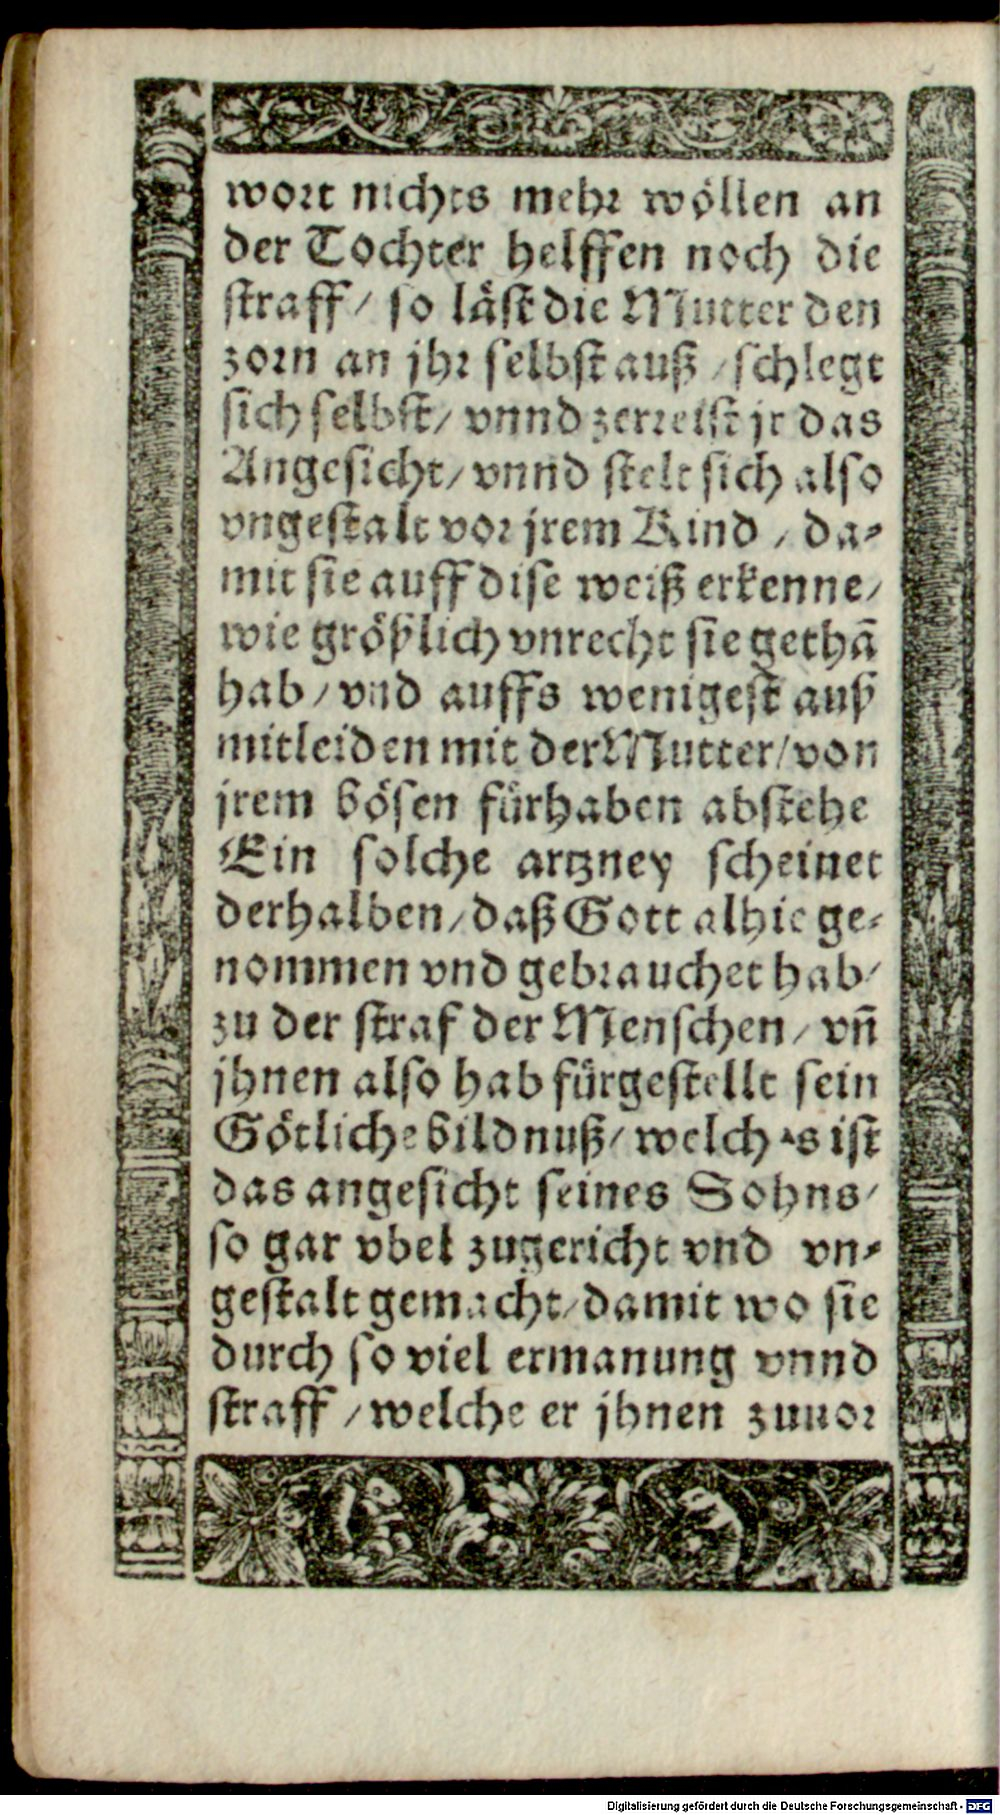 wort nichts mehr wöllen an
der Tochter helffen noch die
straff/ so läst die Mutter den
zorn an jhr selbst auß/ schlegt
sich selbst/ vnnd zerreist jr das
Angesicht/ vnnd stelt sich also
vngestalt vor jrem Kind/ da-
mit sie auff dise weiß erkenne/
wie größlich vnrecht sie gethā
hab/ vnd auffs wenigest auß
mitleiden mit der Mutter/ von
jrem bösen fürhaben abstehe
Ein solche artzney scheinet
derhalben/ daß Gott alhie ge-
nommen vnd gebrauchet hab/
zu der straf der Menschen/ vn̄
jhnen also hab fürgestellt sein
Götliche bildnuß/ welches ist
das angesicht seines Sohns/
so gar vbel zugericht vnd vn-
gestalt gemacht/ damit wo sie
durch so viel ermanung vnnd
straff/ welche er jhnen zuuor
Digitalisierung gefördert durch die Deutsche Forschungsgemeinschaft - DFG